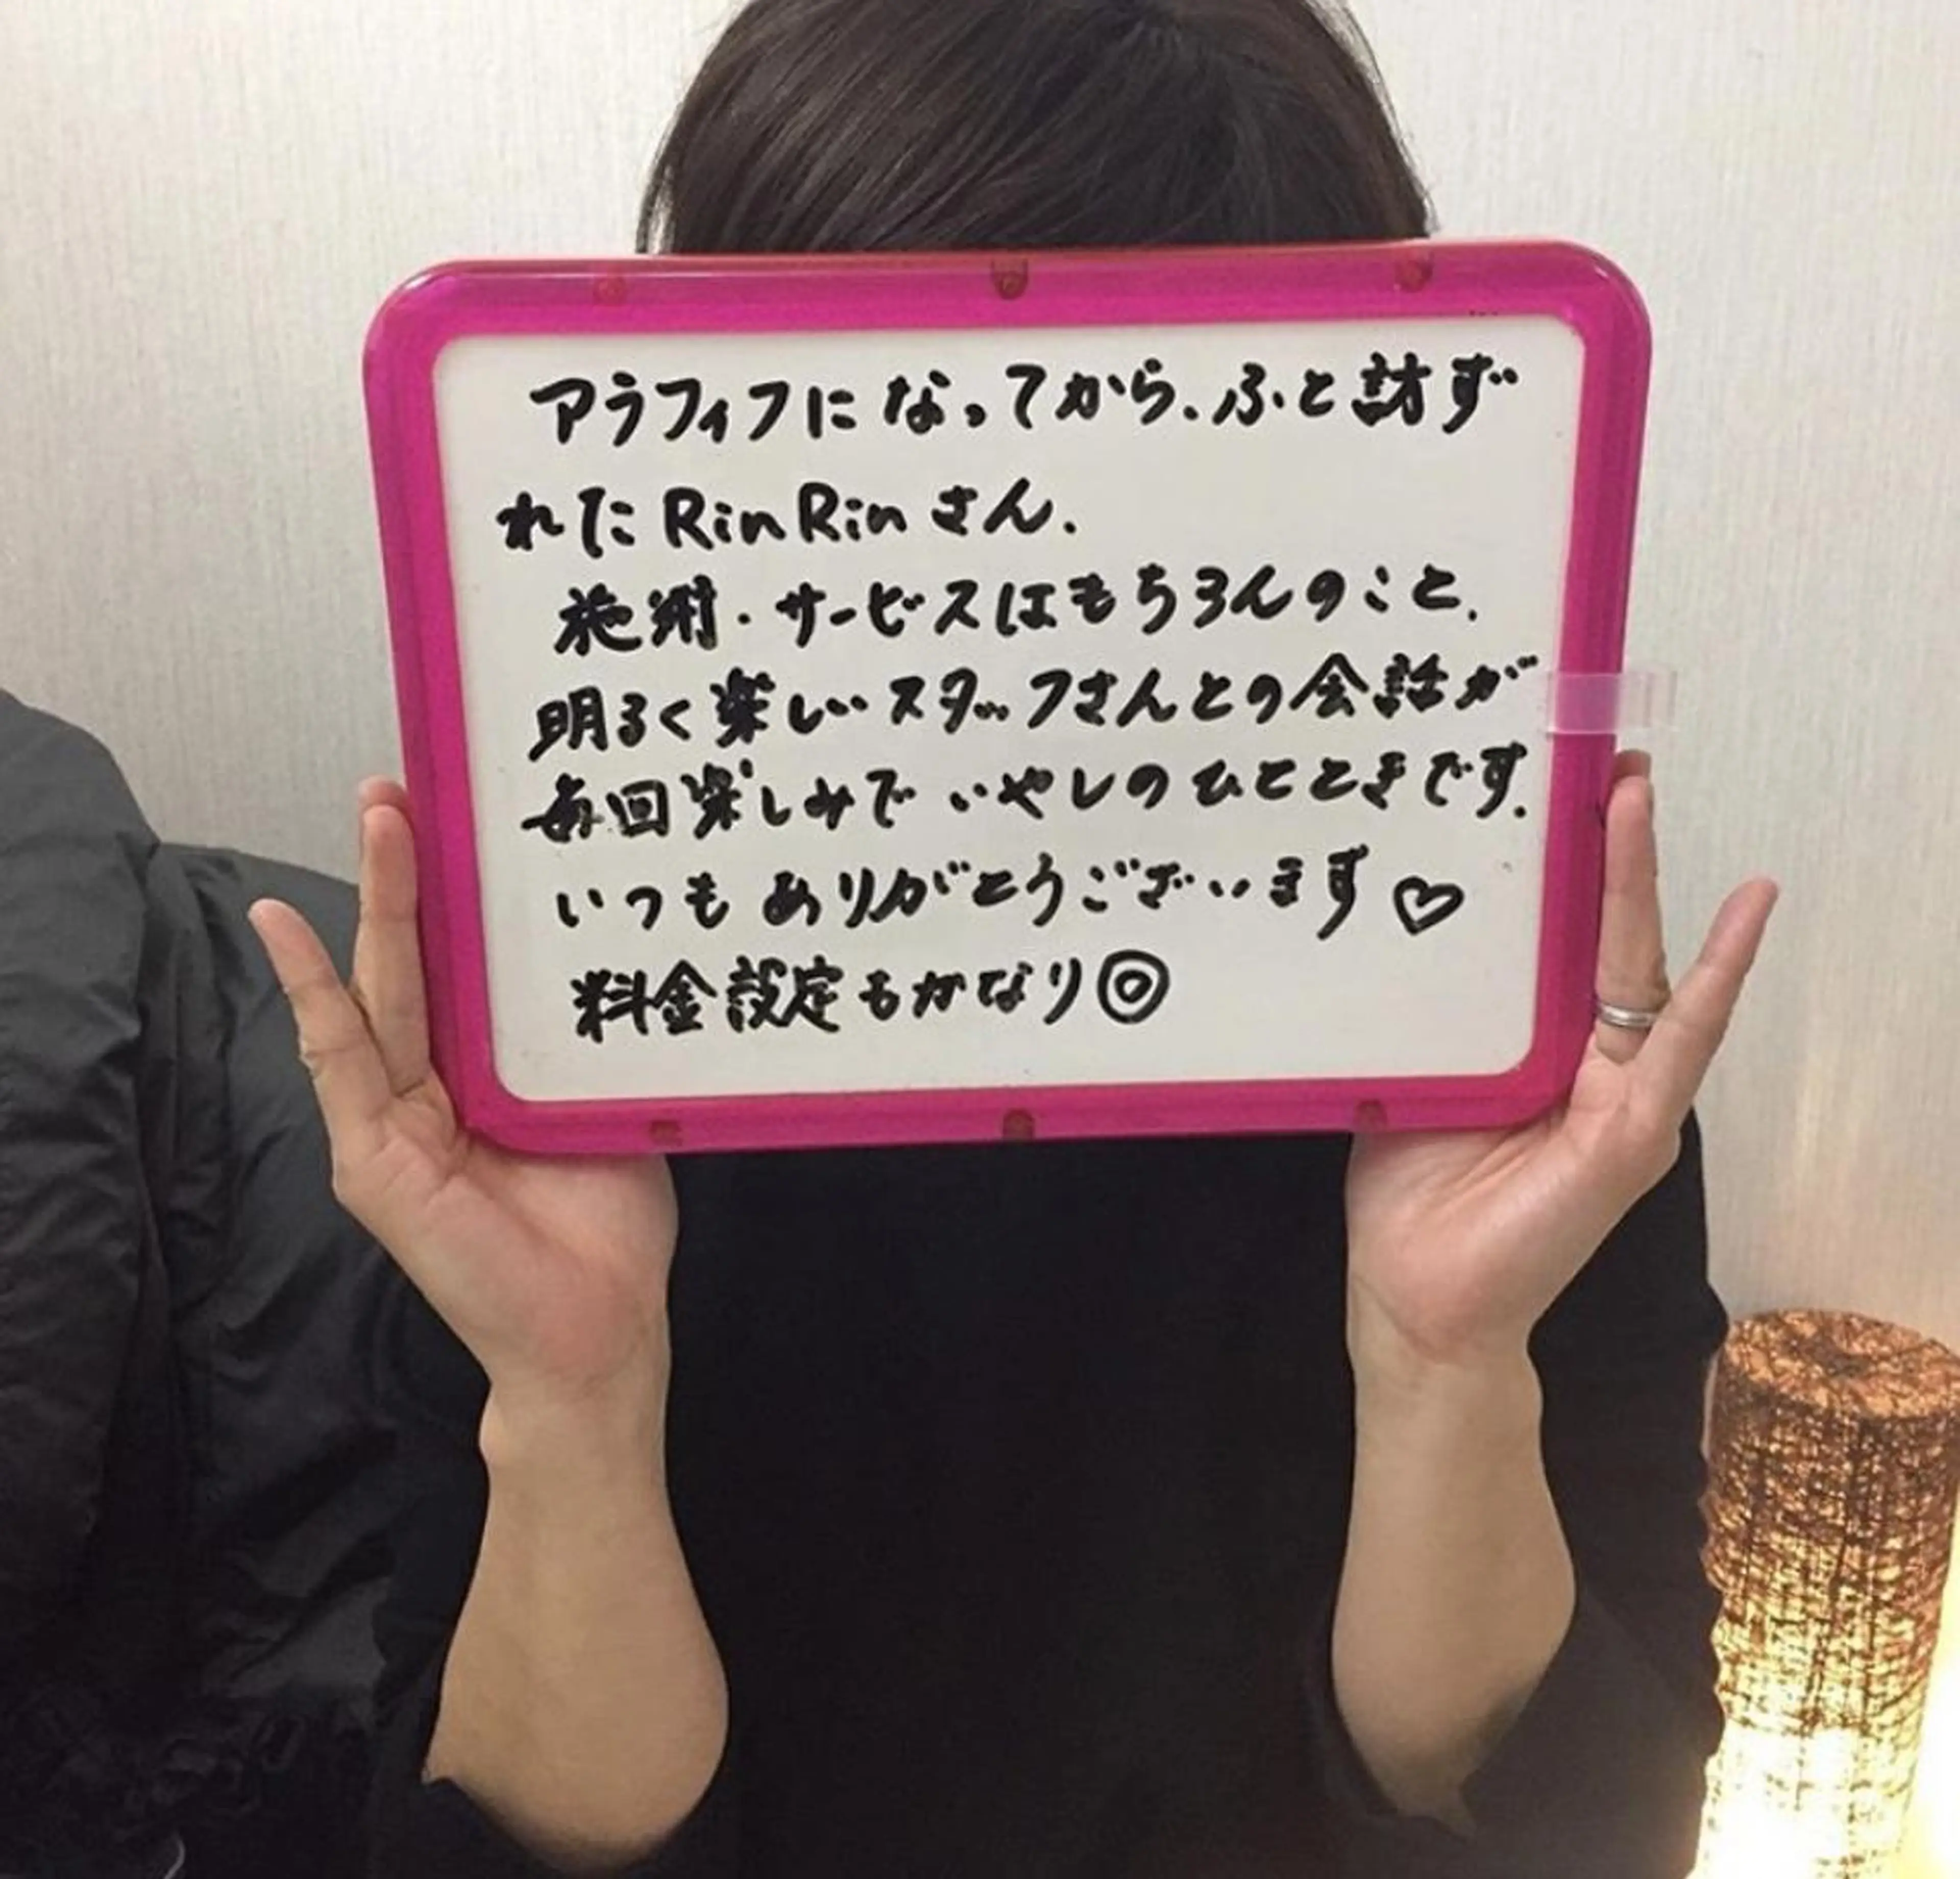 アラフィフになってから、ふと訪ず
れたRinRinさん.
施術・サービスはもちろんのこと、
明るく楽しいスタッフさんとの会話が
毎回楽しみでいやしのひとときです.
いつもありがとうございます♡
料金設定もかなり◎